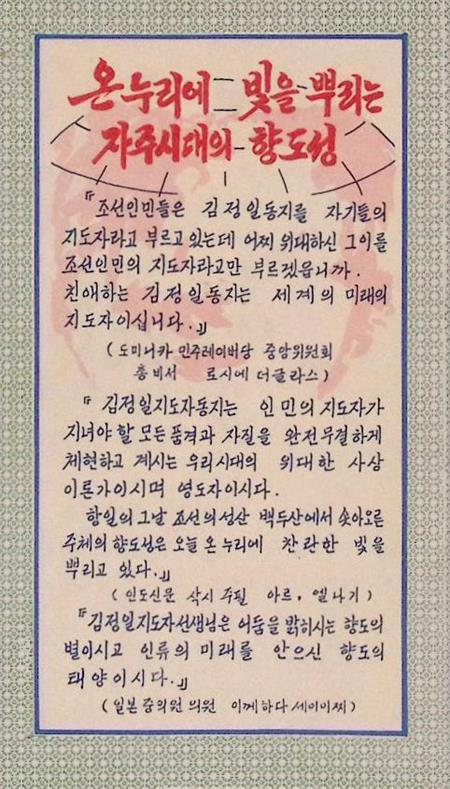 온누리에 빛을 뿌리는
자주시대의 향도성
『조선인민들은 김정일동지를 자기들의
지도자라고 부르고있는데 어찌 위대하신 그이를
조선인민의 지도자라고만 부르겠읍니까.
친애하는 김정일동지는 세계의 미래의
지도자이십니다.』
(도미니카 민주레이버당 중앙위원회
총비서 로시에 더글라스)
『김정일지도자동지는 인민의 지도자가
지녀야 할 모든 품격과 자질을 완전무결하게
체현하고 계시는 우리시대의 위대한 사상
이론가이시며 영도자이시다.
항일의 그날 조선의 성산 백두산에서 솟아오른
주체의 향도성은 오늘 온누리에 찬란한 빛을
뿌리고 있다.』
(인도신문 삭시 주필 아르, 엘나기)
『김정일지도자선생님은 어둠을 밝히시는 향도의
별이시고 인류의 미래를 안으신 향도의
태양이시다.』
(일본 중의원 의원 이께하다 세이이찌)